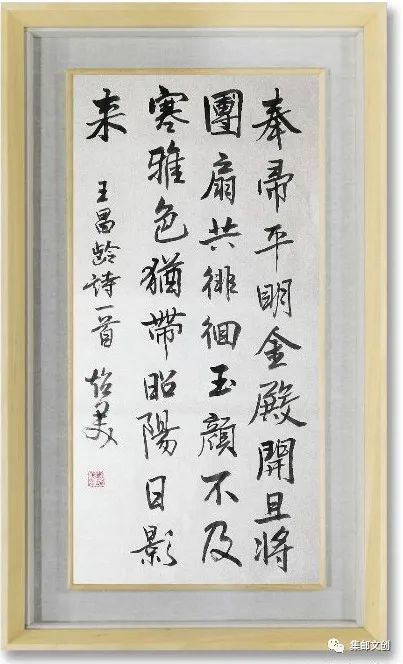 奉帚平明金殿開且将
團扇共徘徊玉顏不及
寒雅色猶帶昭陽日影
来
王昌齡詩一首 美
集邮文创